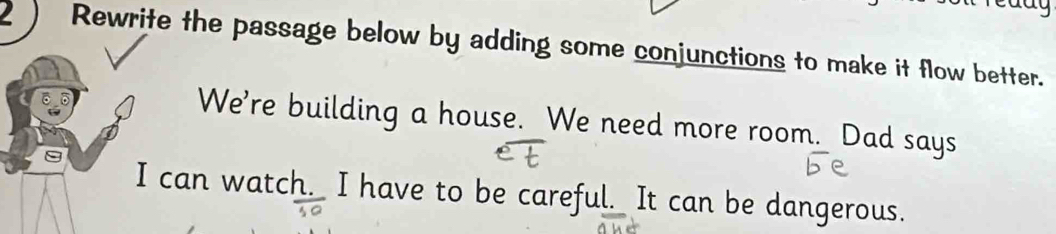 2) Rewrite the passage below by adding some conjunctions to make it flow better.
We're building a house. We need more room. Dad says
et
be
I can watch. I have to be careful. It can be dangerous.
so
and